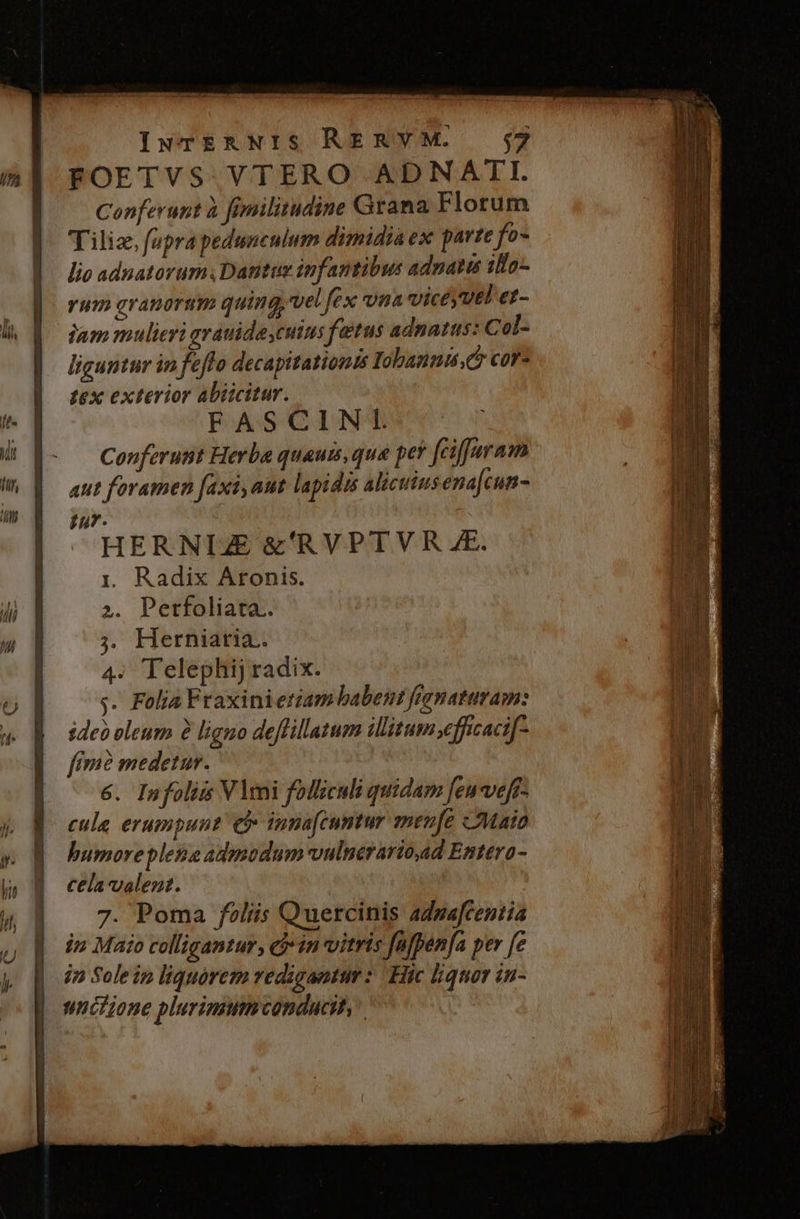 INTERNIS RERVM. 57
FOETVS VTERO ADNATI.
Conferunt à ſimilitudine Grana Florum
Tiliæ, ſupra pedunculum dimidia ex parte fo-
lio adnatorum. Dantur infantibus adnatis illo-
rum granorum quinq; vel ſex vna vice, vel et-
iam mulieri grauidæ, cuius fœtus adnatus: Col-
liguntur in feſto decapitationis Iohannis, & cor-
tex exterior abiicitur.
FASCINI.
Conferunt Herbæ quæuis, quæ per ſciſſuram
aut foramen ſaxi, aut lapidis alicuius enaſcun-
tur.
HERNIÆ & RVPTVRÆ.
1. Radix Aronis.
2. Perfoliata.
3. Herniaria.
4. Telephij radix.
5. Folia Fraxini etiam habent ſignaturam:
ideò oleum è ligno deſtillatum illitum, efficaciſ-
ſimè medetur.
6. In foliis Vlmi folliculi quidam ſeu veſi-
culæ erumpunt & innaſcuntur menſe Maio
humore plenæ admodum vulnerario, ad Entero-
cela valent.
7. Poma foliis Quercinis adnaſcentia
in Maio colligantur, & in vitris ſuſpenſa per ſe
in Sole in liquorem redigantur: Hic liquor in-
unctione plurimum conducit,